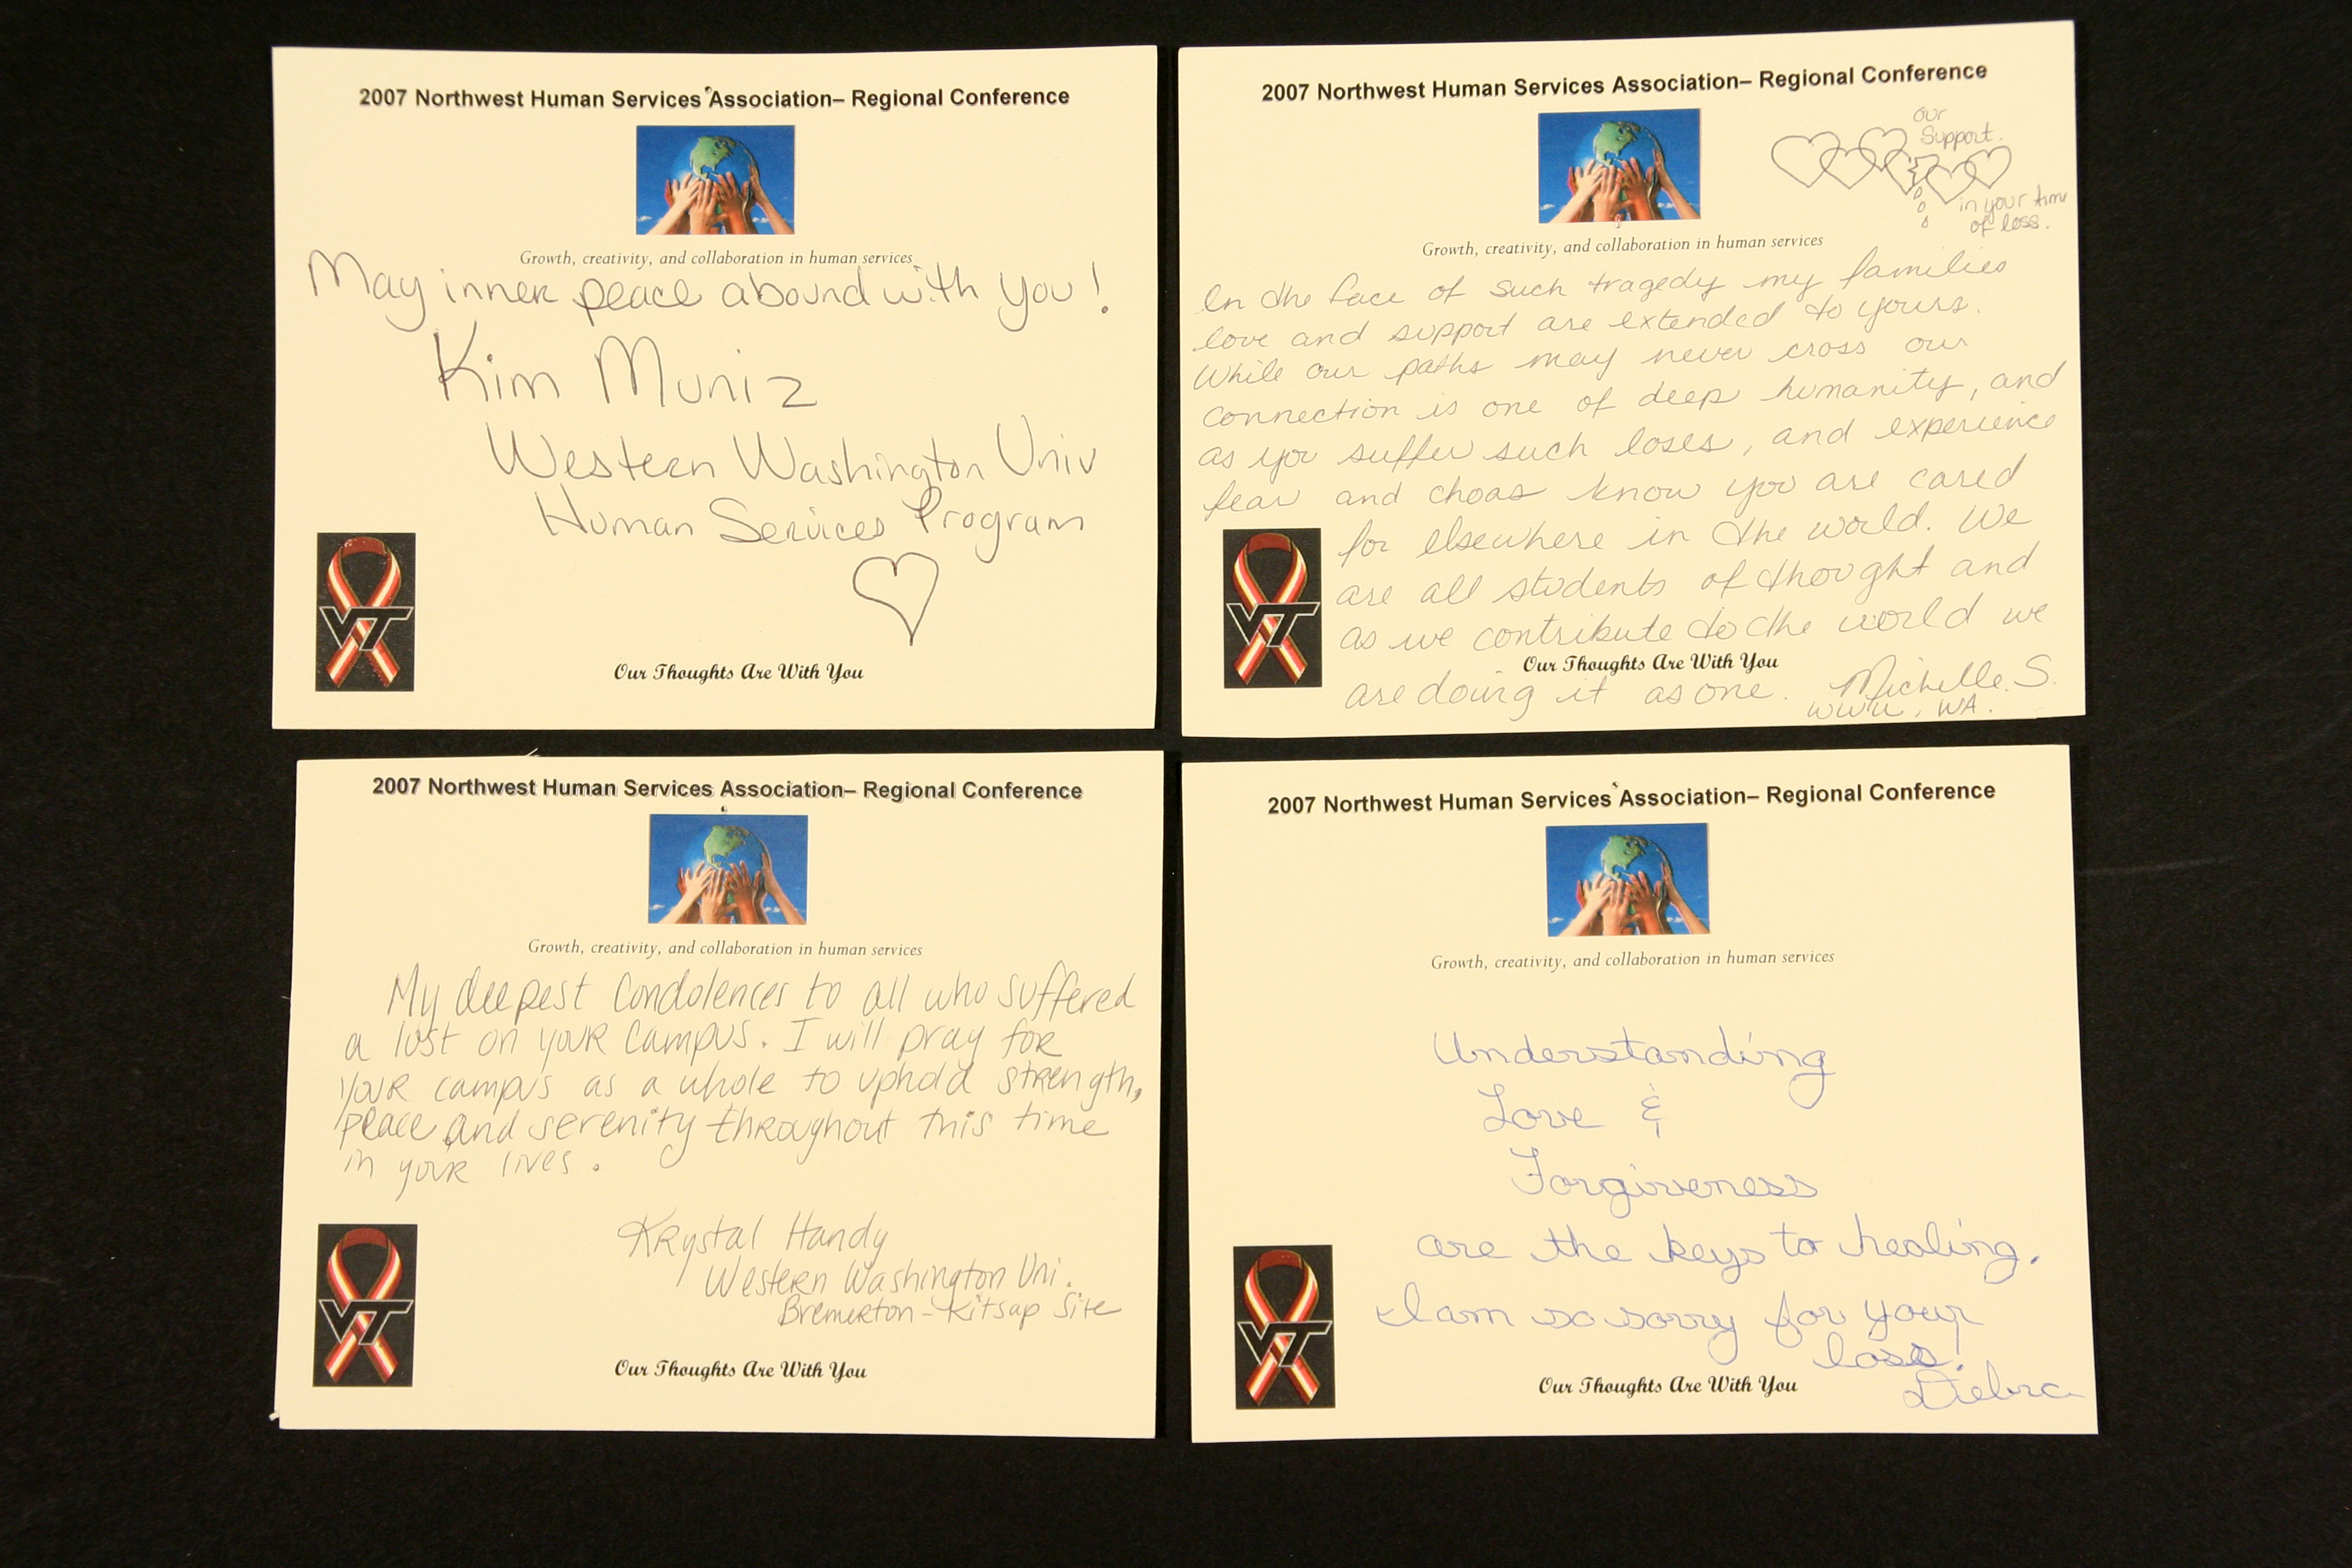 2007 Northwest Human Services Association– Regional Conference
Growth, creativity, and collaboration in human services
May inner peace abound with you!
Kim Muniz
Western Washington Univ
Human Services Program
VT
Our Thoughts Are With You
2007 Northwest Human Services Association– Regional Conference
our
Support.
in your time
of loss.
Growth, creativity, and collaboration in human services
In the face of such tragedy my families
love and support are extended to yours.
While our paths may never cross our
connection is one of deep humanity, and
as you suffer such loses, and experience
fear and choas know you are cared
for elsewhere in the world. We
are all students of thought and
as we contribute to the world we
VT
Our Thoughts Are With You
are doing it as one. Michelle. S.
WWU, WA.
2007 Northwest Human Services Association– Regional Conference
Growth, creativity, and collaboration in human services
My deepest Condolences to all who suffered
a lost on your campus. I will pray for
your campus as a whole to uphold strength,
peace and serenity throughout this time
in your lives.
Krystal Handy
Western Washington Uni.
Bremerton-Kitsap Site
VT
Our Thoughts Are With You
2007 Northwest Human Services Association– Regional Conference
Growth, creativity, and collaboration in human services
Understanding
Love &
Forgiveness
are the keys to healing.
I am so sorry for your
loss.
VT
Our Thoughts Are With You
Debra